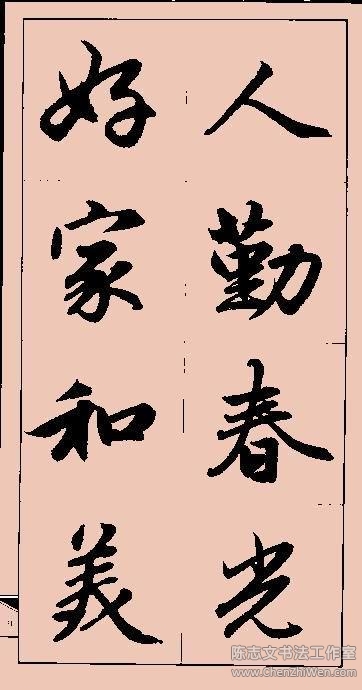 人勤春光
好家和美
陈志文书法工作室
www.chenzhiwen.com